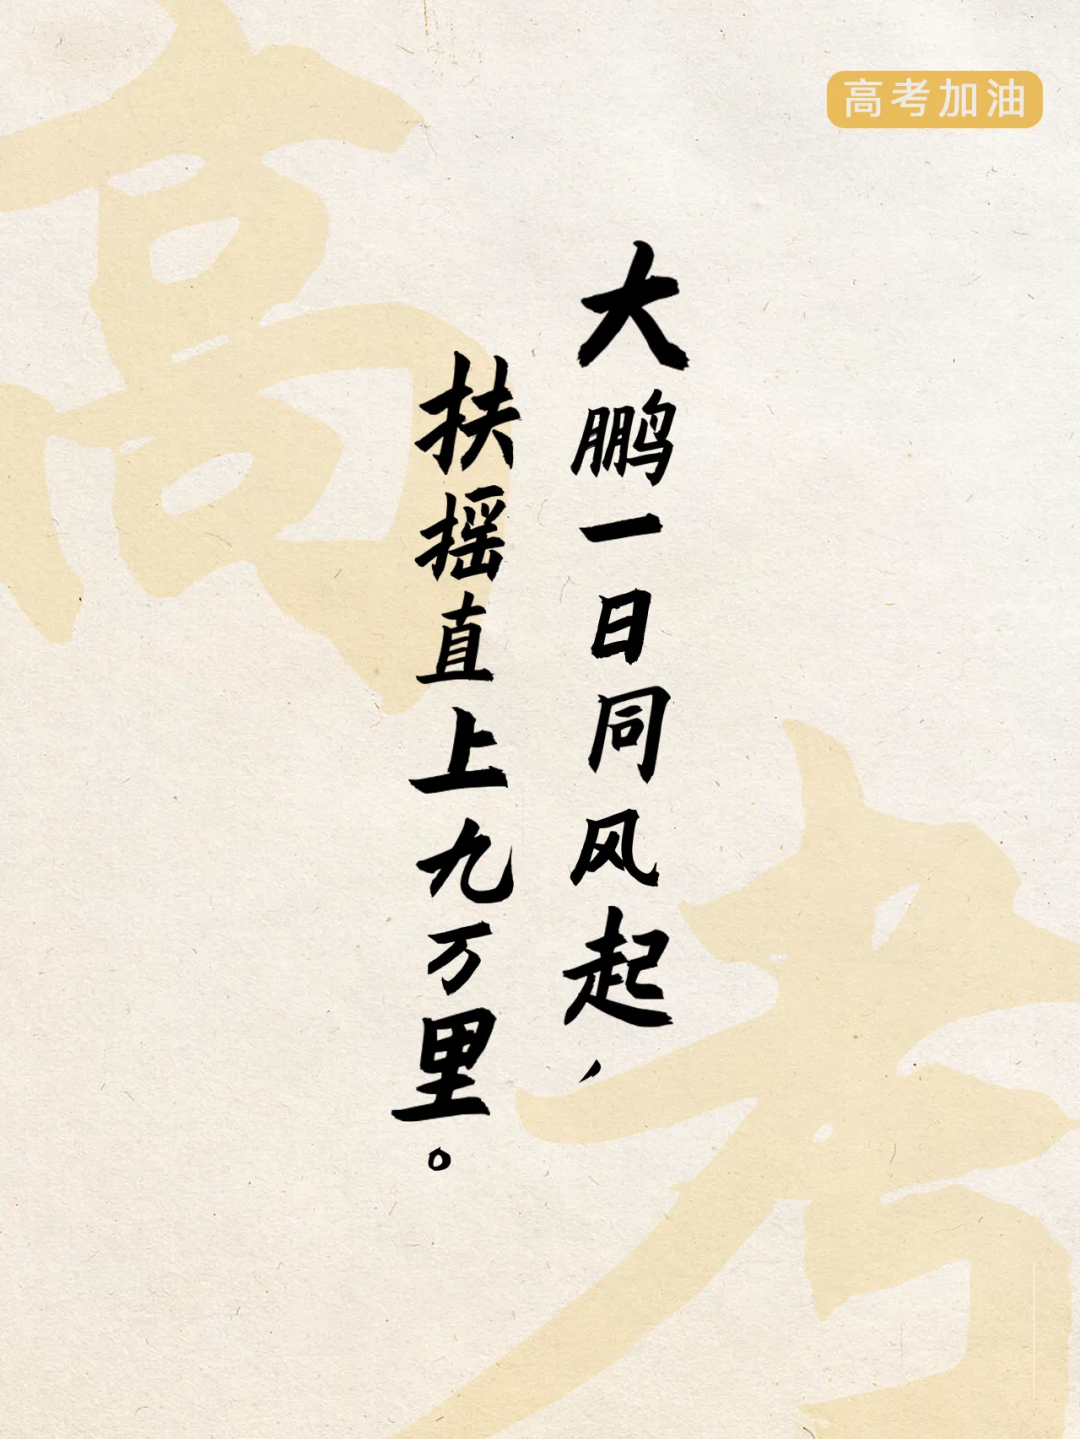 高考加油
大鹏一日同风起，
扶摇直上九万里。
高
考